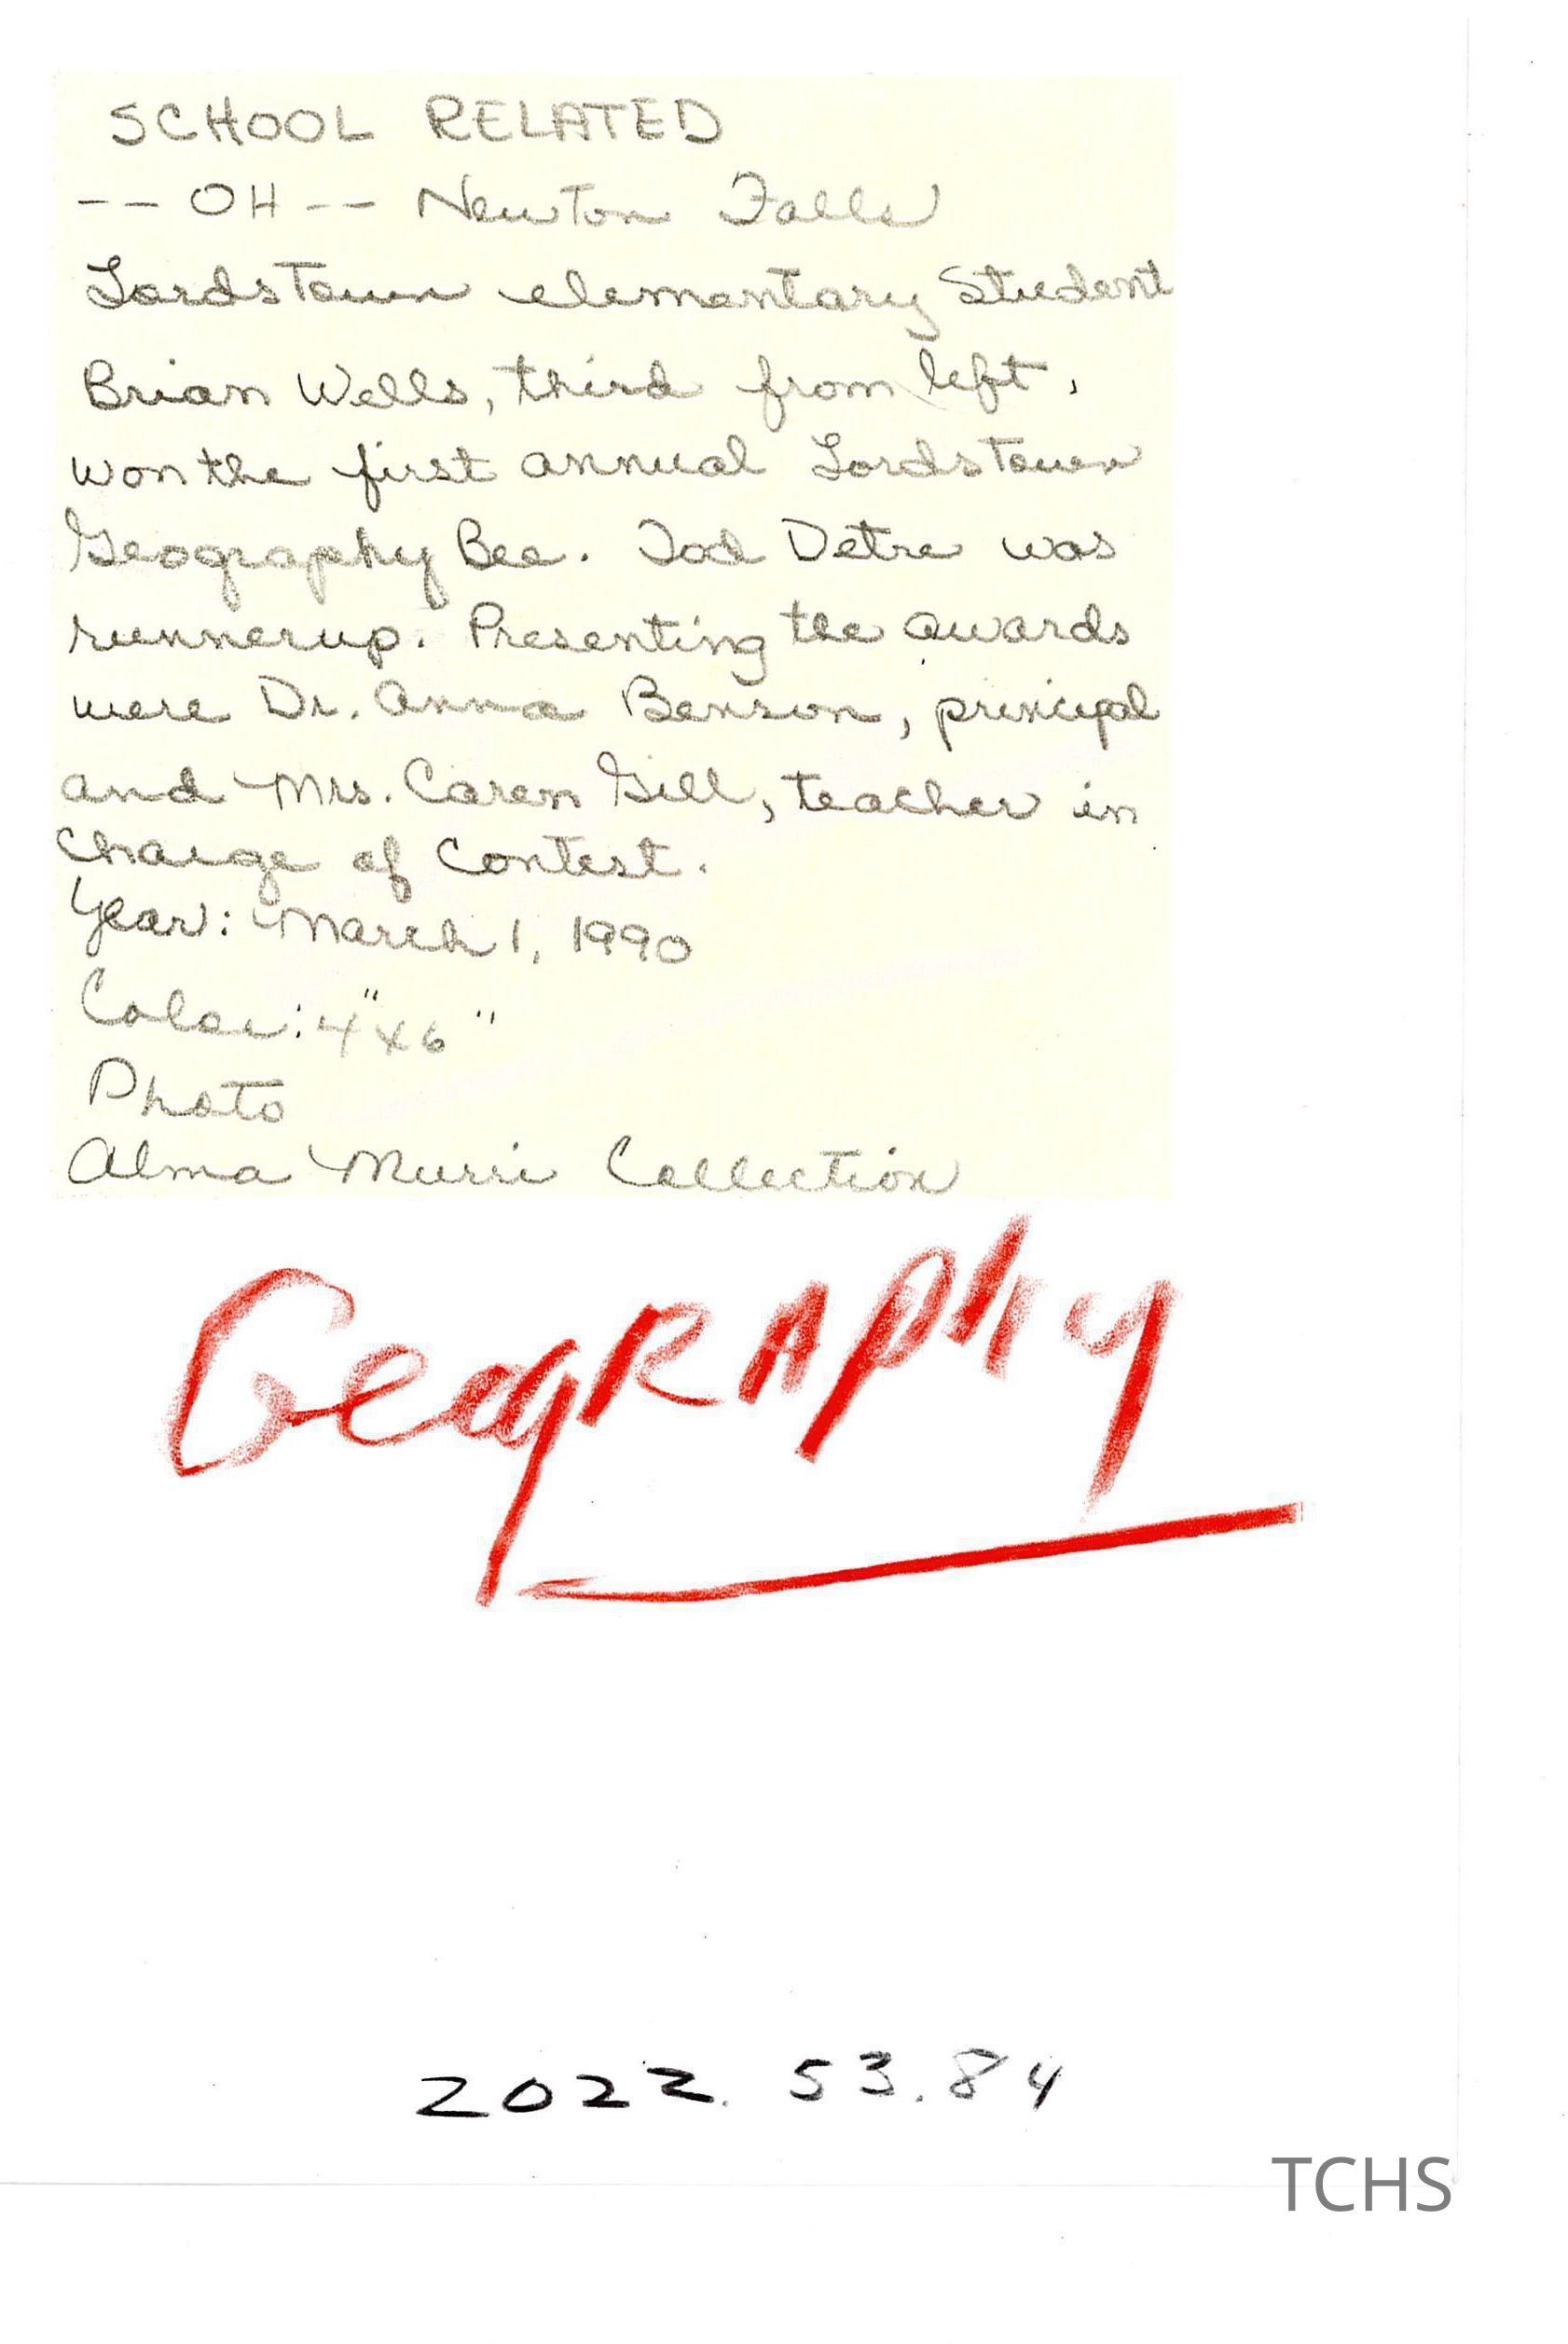 SCHOOL RELATED
-- OH -- Newton Falls
Lordstown elementary Student
Brian Wells, third from left,
won the first annual Lordstown
Geography Bee. Tod Detre was
runnerup. Presenting the awards
were Dr. Anna Benson, principal
and Mrs. Caren Gill, teacher in
Charge of Contest.
Year: March 1, 1990
Color: 4"x6"
Photo
Alma Murri Collection
Geography
2022.53.84
TCHS